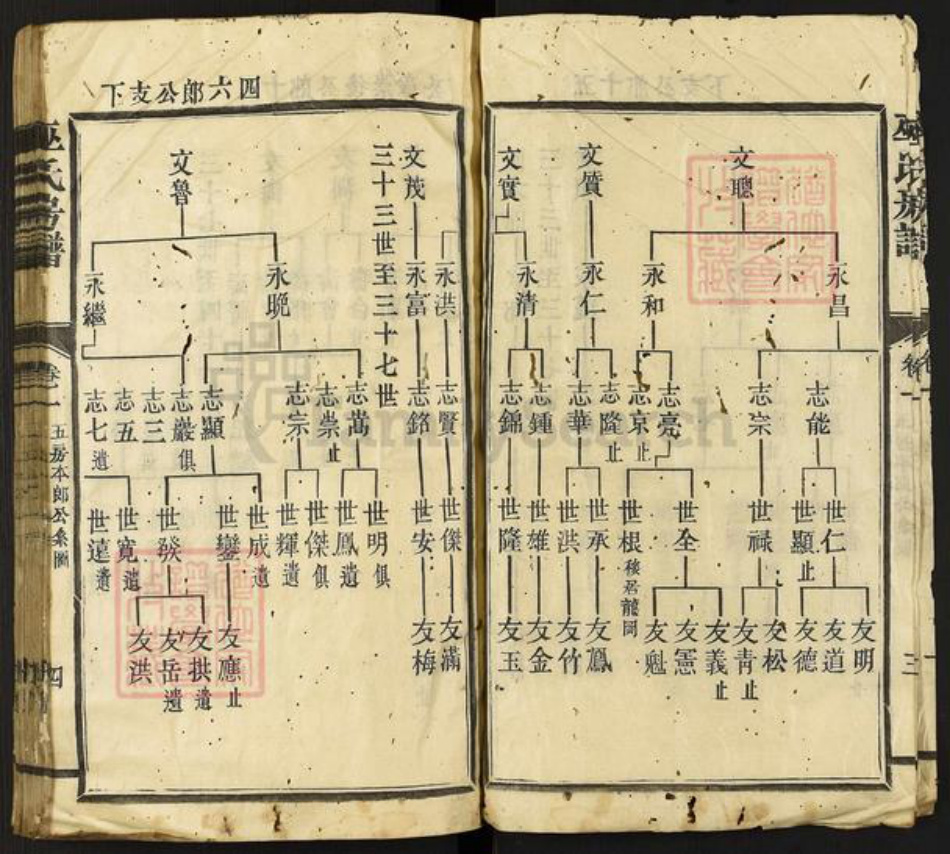 文聰
永昌
永和
志能
志宗
志亮
志京止
世仁
世顯止
世祿
世全
世根移居龍岡
友明
友道
友德
友松
友青止
友義止
友憲
友魁
文質
永仁
志隆止
志華
世承
世洪
友鳳
友竹
文實
永清
志鍾
志錦
世雄
世隆
友金
友玉
三
永洪
志賢
世傑
友滿
文茂
永富
志銘
世安
友梅
三十三世至三十七世
四六郎公支下
文魯
永晚
永繼
志嵩
志崇止
志宗
志顯
志嚴俱
志三
志五
志七遺
世明俱
世鳳遺
世傑俱
世輝遺
世成遺
世鑾
世發
世寬遺
世遠遺
友應止
友拱遺
友岳遺
友洪
卷一
四
FamilySearch